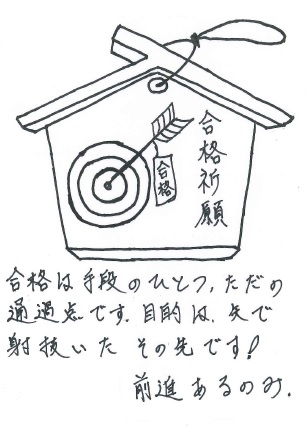 合格祈願
合格
合格は手段のひとつ、ただの
通過点です。目的は、矢で
射抜いた その先です!
前進あるのみ。